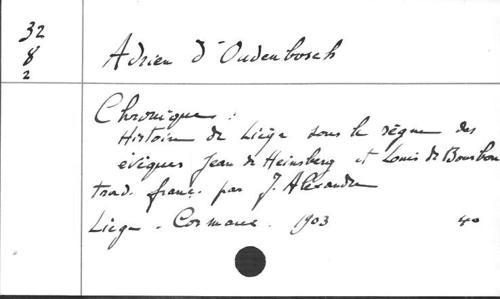 32
8
2
Adrien d'Oudenbosch
Chroniques :
Histoire de Liège sous le règne des
évêques Jean de Heinsberg et Louis de Bourbon
trad. franç. par J. Alexandre
Liège - Cormaux. 1903 4o